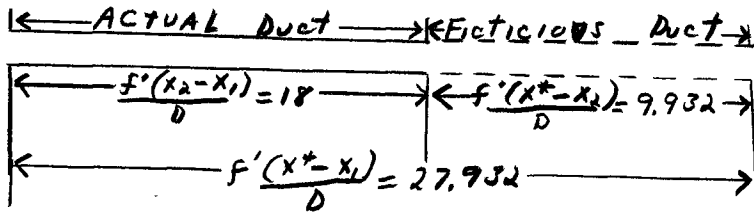 ACTUAL Duct Ficticious Duct
f'(x₂-x₁)/D = 18 f'(x*-x₂)/D = 9.932
f'(x*-x₁)/D = 27.932